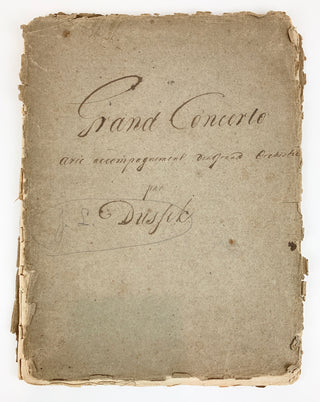 Grand Concerto
avec accompagnement du Grand Orchestre
par
Dussek